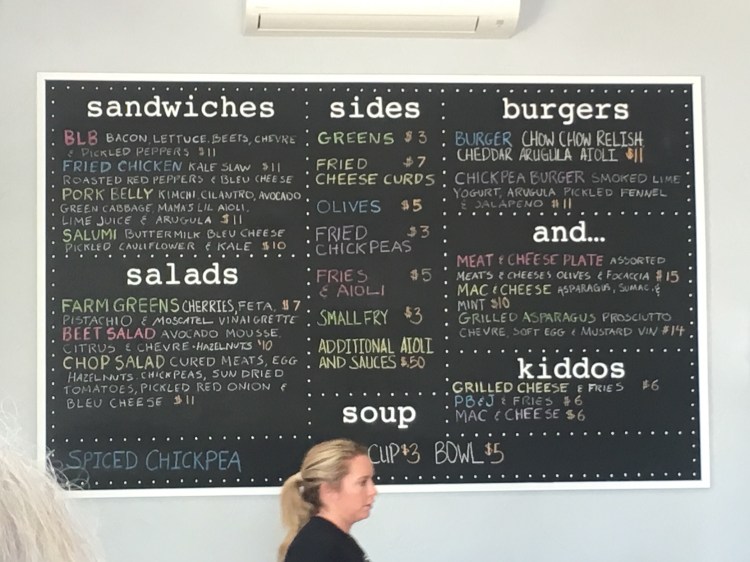 sandwiches
BLB BACON, LETTUCE, BEETS, CHEVRE
& PICKLED PEPPERS $11
FRIED CHICKEN KALE SLAW $11
ROASTED RED PEPPERS & BLEU CHEESE
PORK BELLY KIMCHI, CILANTRO, AVOCADO
GREEN CABBAGE, MAMA'S LIL AIOLI,
LIME JUICE & ARUGULA $11
SALUMI BUTTERMILK BLEU CHEESE
PICKLED CAULIFLOWER & KALE $10
salads
FARM GREENS CHERRIES, FETA, $7
PISTACHIO & MOSCATEL VINAIGRETTE
BEET SALAD AVOCADO MOUSSE,
CITRUS & CHEVRE-HAZELNUTS $10
CHOP SALAD CURED MEATS, EGG
HAZELNUTS, CHICKPEAS, SUN DRIED
TOMATOES, PICKLED RED ONION &
BLEU CHEESE $11
sides
GREENS $3
FRIED $7
CHEESE CURDS
OLIVES $5
FRIED $3
CHICKPEAS
FRIES $5
& AIOLI
SMALL FRY $3
ADDITIONAL AIOLI
AND SAUCES $.50
burgers
BURGER CHOW CHOW RELISH
CHEDDAR ARUGULA AIOLI $11
CHICKPEA BURGER SMOKED LIME
YOGURT, ARUGULA PICKLED FENNEL
& JALAPENO $11
and...
MEAT & CHEESE PLATE ASSORTED
MEATS & CHEESES OLIVES & FOCACCIA $15
MAC & CHEESE ASPARAGUS, SUMAC, &
MINT $10
GRILLED ASPARAGUS PROSCIUTTO
CHEVRE, SOFT EGG & MUSTARD VIN $14
kiddos
GRILLED CHEESE & FRIES $6
PB&J & FRIES $6
MAC & CHEESE $6
soup
SPICED CHICKPEA CUP $3 BOWL $5